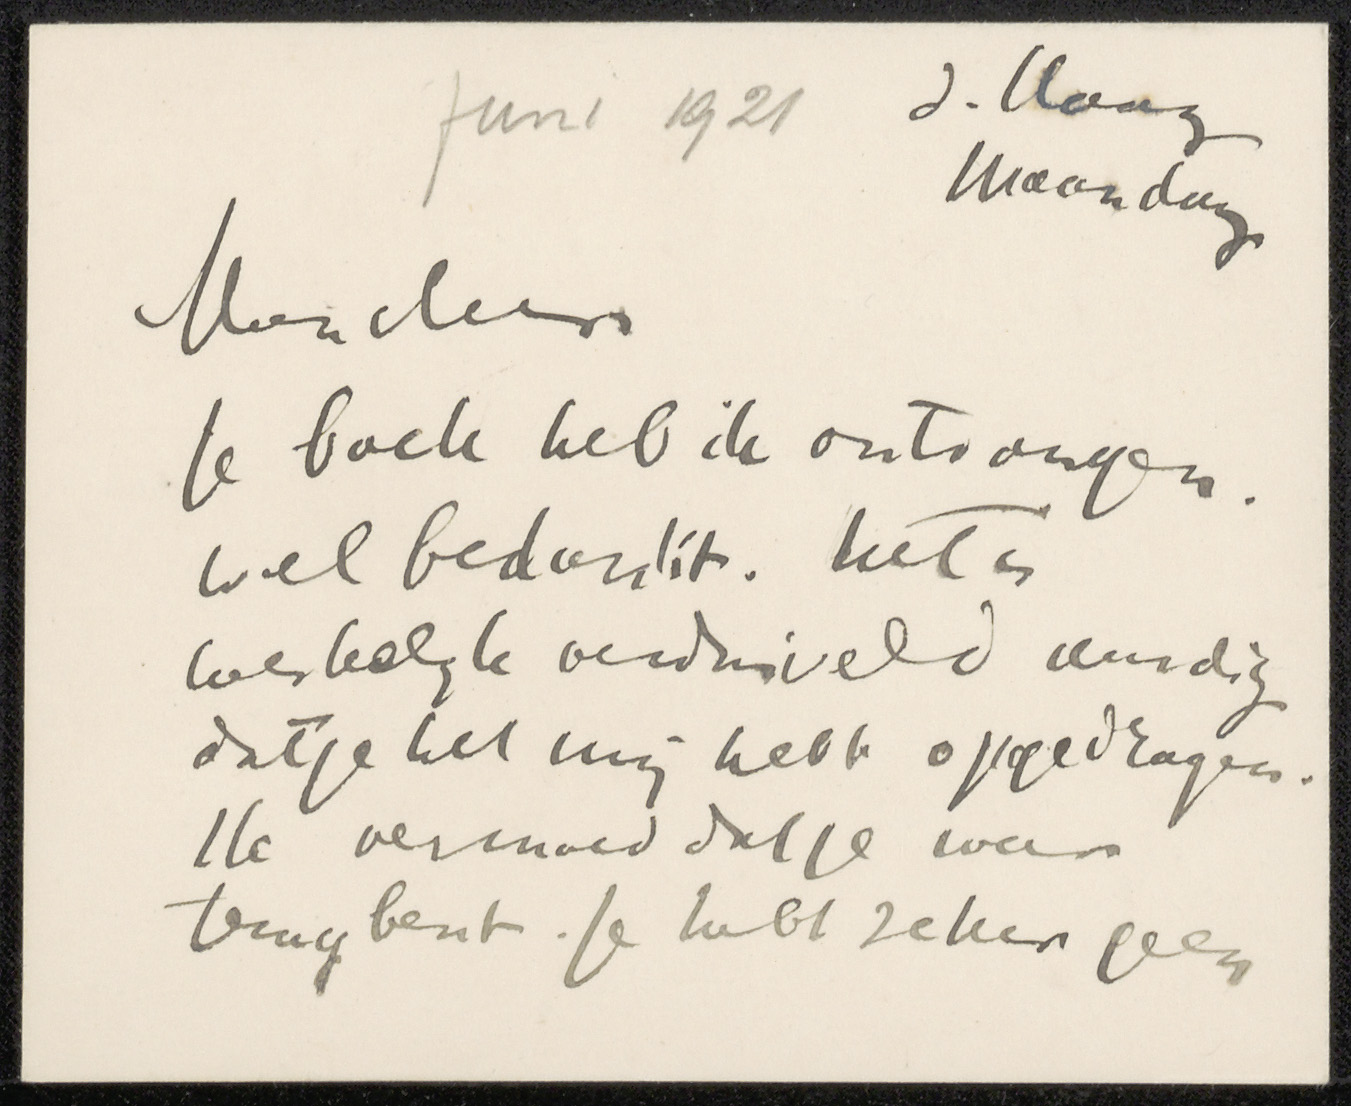 Juni 1921
d. Haag
Maandag
je boek heb ik ontvangen.
wel bedankt. het is
werkelijk verduiveld aardig
dat je het mij hebt opgedragen.
Ik vermoed dat je weer
terug bent. Je hebt zeker geen